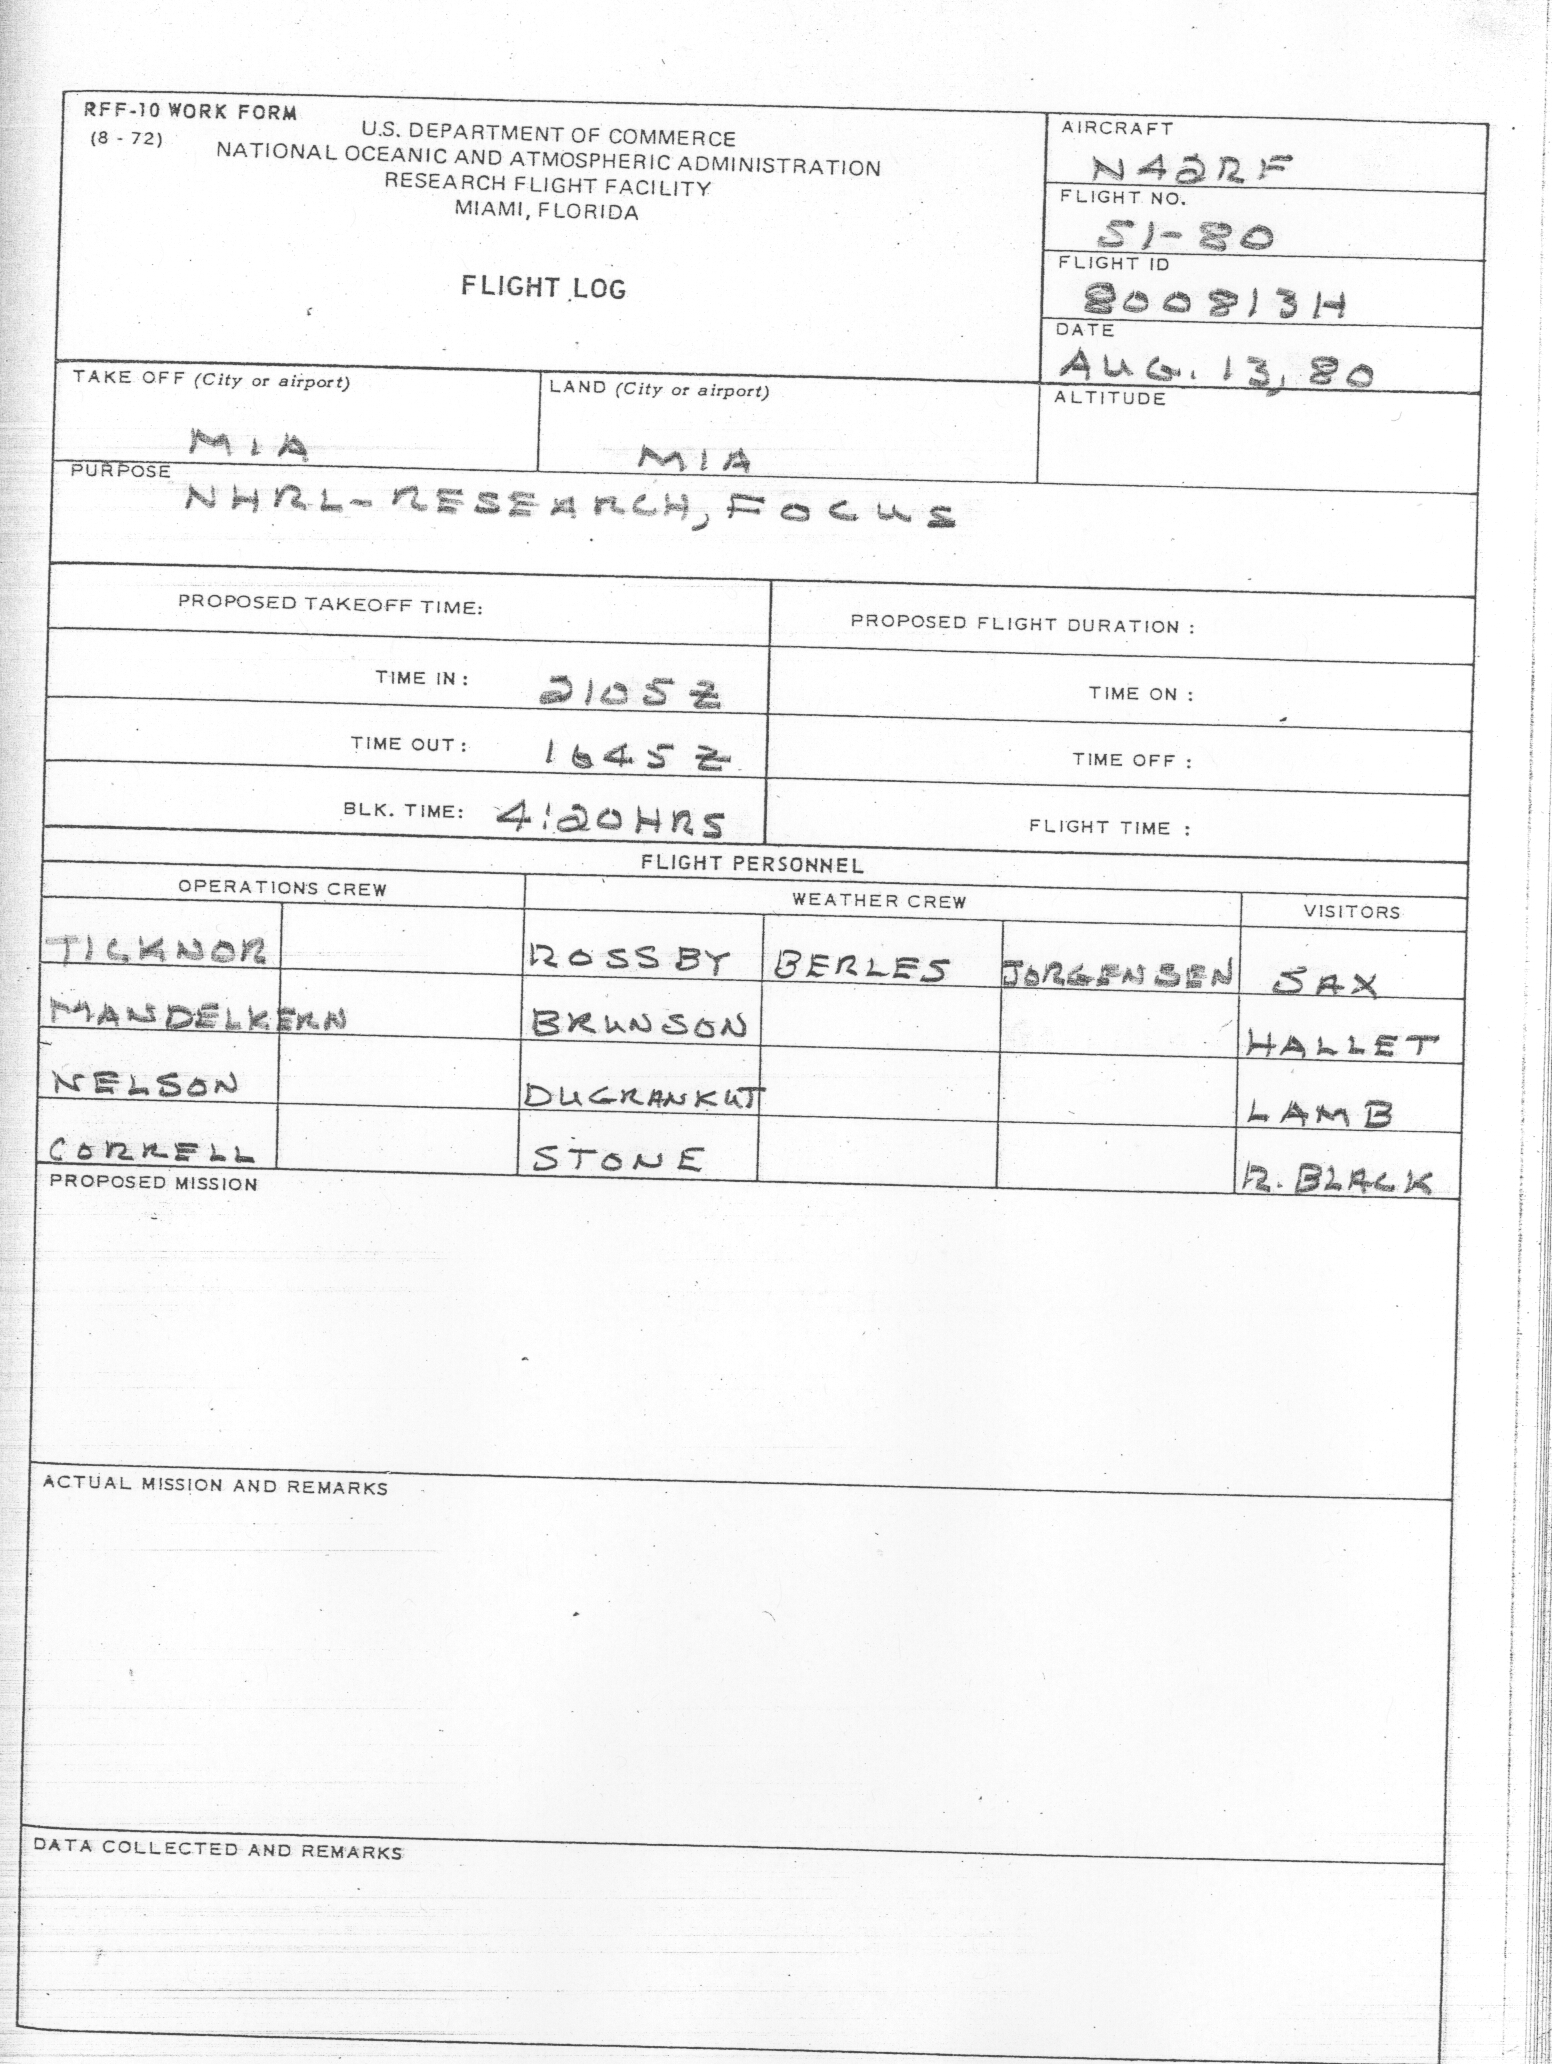 RFF-10 WORK FORM
(8 - 72)
U.S. DEPARTMENT OF COMMERCE
NATIONAL OCEANIC AND ATMOSPHERIC ADMINISTRATION
RESEARCH FLIGHT FACILITY
MIAMI, FLORIDA
FLIGHT LOG
AIRCRAFT
N42RF
FLIGHT NO.
51-80
FLIGHT ID
800813H
DATE
AUG. 13, 80
TAKE OFF (City or airport)
MIA
LAND (City or airport)
MIA
ALTITUDE
PURPOSE
NHRL-RESEARCH, FOCUS
PROPOSED TAKEOFF TIME:
PROPOSED FLIGHT DURATION :
TIME IN : 2105 Z
TIME ON :
TIME OUT : 1645 Z
TIME OFF :
BLK. TIME: 4:20 HRS
FLIGHT TIME :
FLIGHT PERSONNEL
OPERATIONS CREW WEATHER CREW VISITORS
TICKNOR ROSSBY BERLES JORGENSEN SAX
MANDELKERN BRUNSON HALLET
NELSON DUGRANKUT LAMB
CORRELL STONE R. BLACK
PROPOSED MISSION
ACTUAL MISSION AND REMARKS
DATA COLLECTED AND REMARKS